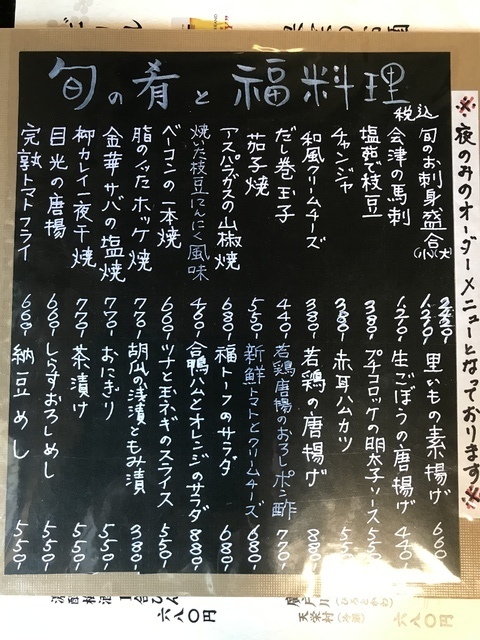 旬の肴と福料理
税込
旬のお刺身盛合(小)(大) 1,270- 2,280-
会津の馬刺 1,270-
塩茹で枝豆 380-
チャンジャ 380-
和風クリームチーズ 380-
だし巻玉子 440-
茄子焼 550-
アスパラガスの山椒焼 680-
焼いた枝豆にんにく風味 460-
ベーコンの一本焼 660-
脂のったホッケ焼 770-
金華サバの塩焼 770-
柳カレイ一夜干焼 770-
目光の唐揚 660-
完熟トマトフライ 660-
里いもの素揚げ 660
生ごぼうの唐揚げ 440-
プチコロッケの明太子ソース 550-
赤耳ハムカツ 550-
若鶏の唐揚げ 880-
若鶏唐揚のおろしポン酢 770-
新鮮トマトとクリームチーズ 680-
福トーフのサラダ 680-
合鴨ハムとオレンジのサラダ 880-
ツナと玉ネギのスライス 550-
胡瓜の浅漬ともみ漬 380-
おにぎり 550-
茶漬け 550-
しらすおろしめし 550-
納豆めし 550-
※夜のみのオーダーメニューとなっております※
六八〇円
天栄村(冷酒)
六八〇円